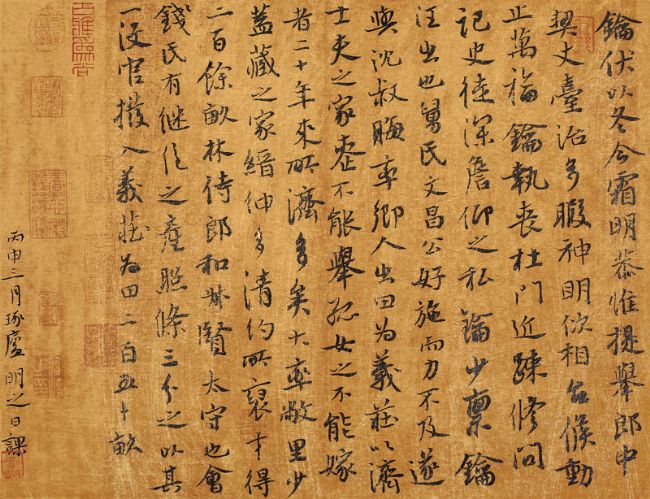 鑰伏以冬令霜明恭惟提舉郎中
契丈臺治多暇神明依相台候動
止萬福鑰執喪杜門近疎修問
記史徒深詹仰之私鑰少稟鑰
汪出也舅氏文昌公好施而力不及遂
與沈叔晦率鄉人出田為義莊以濟
士夫之家葬不能舉孤女之不能嫁
者二十年來所濟多矣大率敝里少
蓋藏之家縉紳多清約所裒才得
二百餘畝林侍郎和叔賢太守也會
錢氏有繼絕之產照條三分之以其
一沒官撥入義莊為田二百五十畝
丙申三月琢廬明之日課